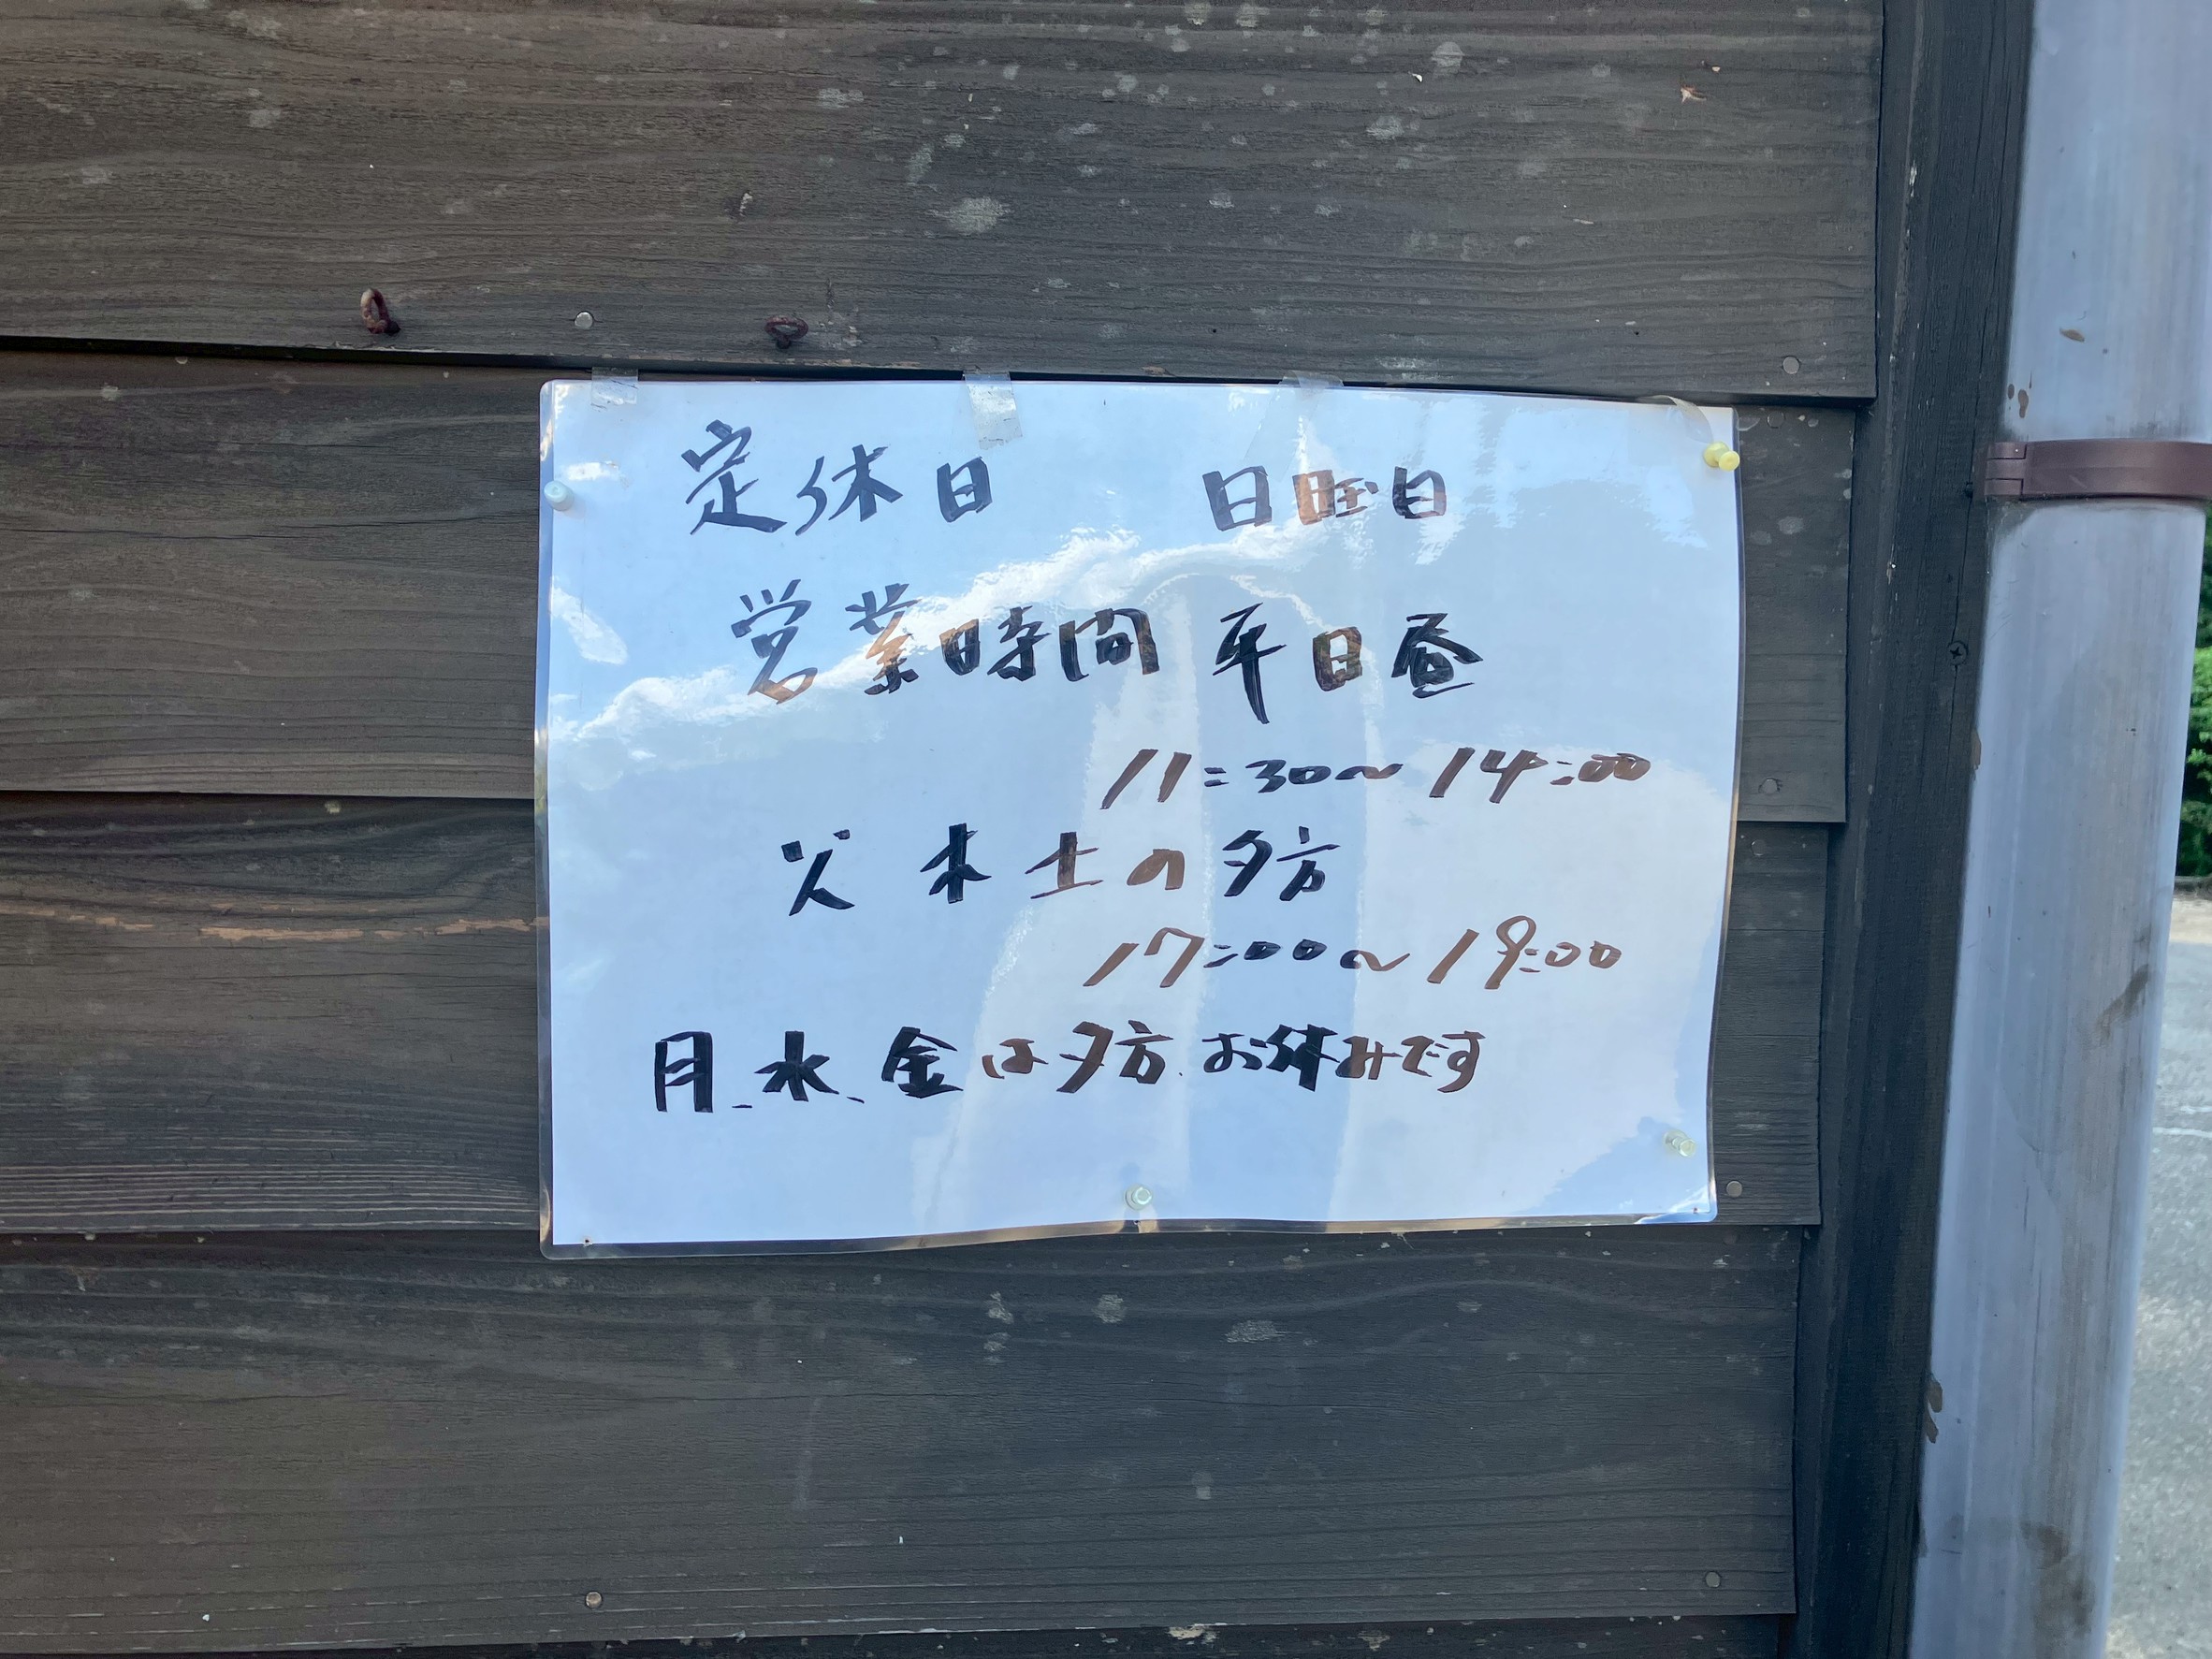 定休日 日曜日
営業時間 平日昼
11:30～14:00
火 木 土の夕方
17:00～19:00
月、水、金は夕方お休みです